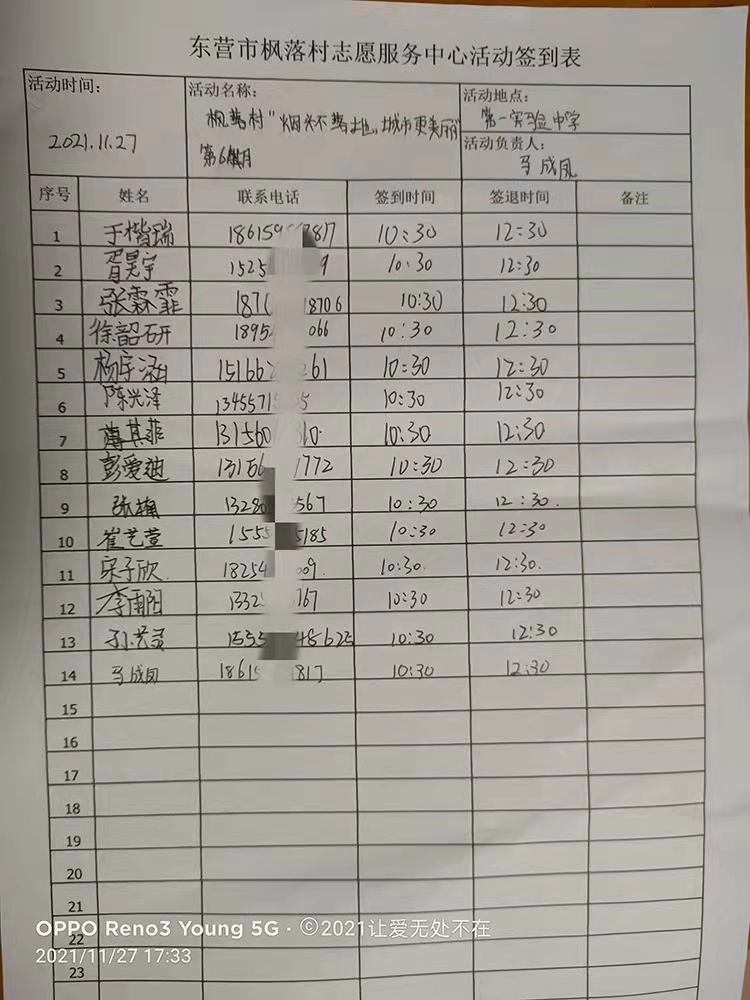 东营市枫落村志愿服务中心活动签到表
活动时间: 2021.11.27
活动名称: 枫落村"烟头不落地,城市更美丽"
第6期
活动地点: 第一实验中学
活动负责人: 马成凤
序号 姓名 联系电话 签到时间 签退时间 备注
1 于楷瑞 18615 817 10:30 12:30
2 胥昊宇 1525 9 10:30 12:30
3 张霖霏 187 8706 10:30 12:30
4 徐韶研 1895 066 10:30 12:30
5 杨宇涵 15166 261 10:30 12:30
6 陈兴泽 1345571 5 10:30 12:30
7 其菲 131560 10 10:30 12:30
8 彭爱迪 13156 1772 10:30 12:30
9 张 1328 567 10:30 12:30
10 崔艺萱 1555 5185 10:30 12:30
11 宋子欣 18254 009 10:30 12:30
12 李雨阳 1332 767 10:30 12:30
13 孙 1555 48625 10:30 12:30
14 马成凤 1861 817 10:30 12:30
15
16
17
18
19
20
21
22
23
OPPO Reno3 Young 5G · ©2021让爱无处不在
2021/11/27 17:33